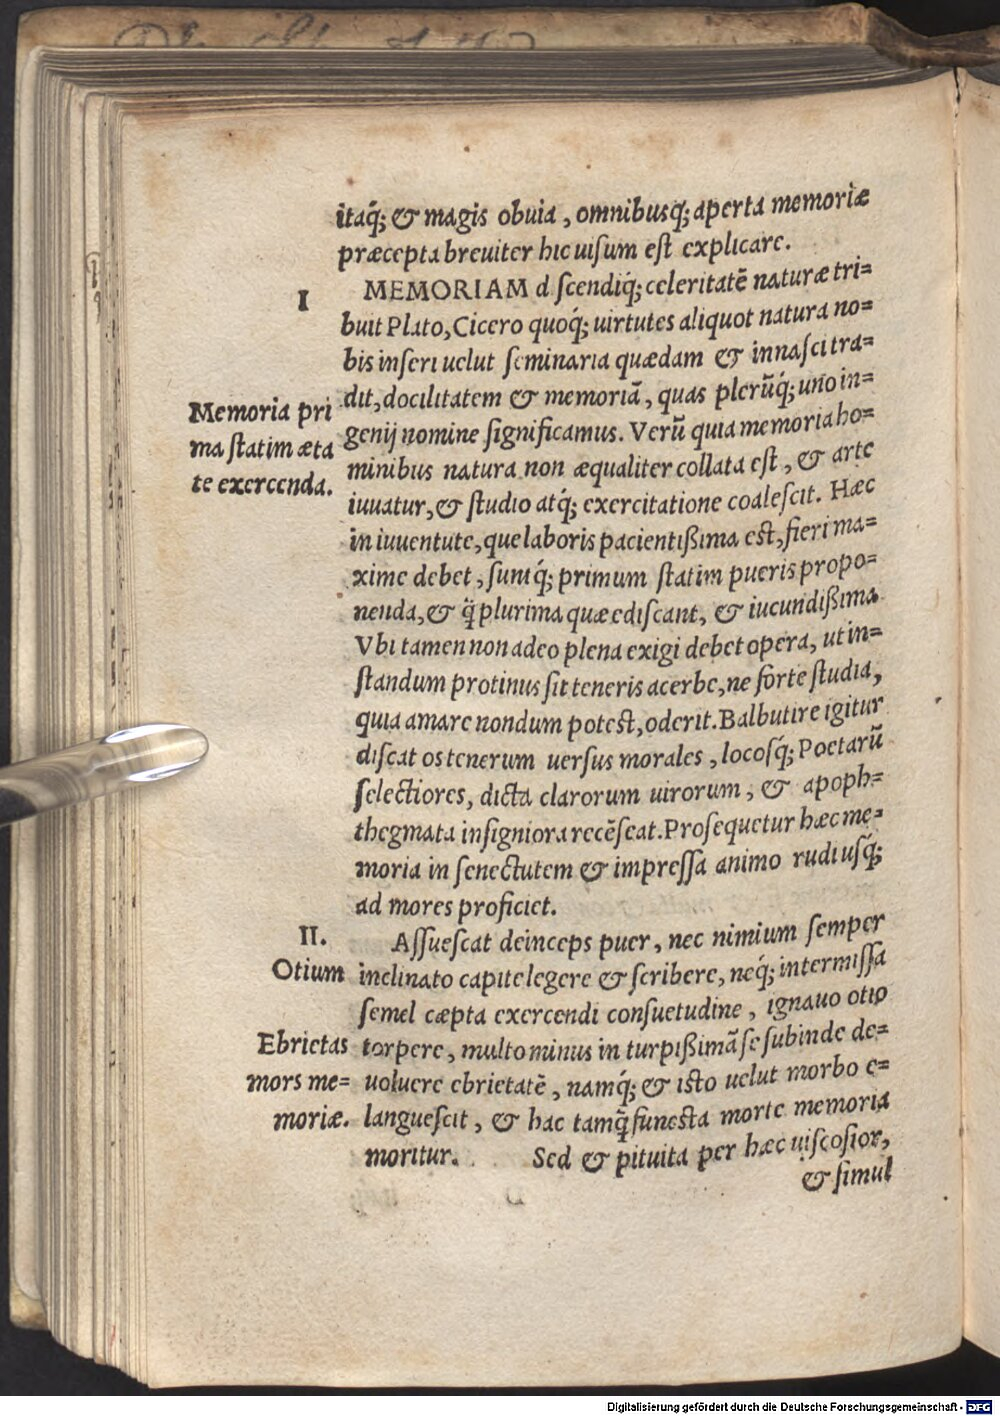 itaq́; & magis obuia, omnibusq́; aperta memoriæ
præcepta breuiter hic uisum est explicare.
I
MEMORIAM d scendiq́; celeritatẽ naturæ tri=
buit Plato, Cicero quoq́; uirtutes aliquot natura no=
bis inseri uelut seminaria quædam & innasci tra=
dit, docilitatem & memoriã, quas plerũq́; uno in=
Memoria pri
ma statim æta
te exercenda.
genij nomine significamus. Verũ quia memoria ho=
minibus natura non æqualiter collata est, & arte
iuuatur, & studio atq́; exercitatione coalescit. Hæc
in iuuentute, que laboris pacientißima est, fieri ma=
xime debet, sumq́; primum statim pueris propo=
nenda, & q̃ plurima quæ ediscant, & iucundißima
Vbi tamen non adeo plena exigi debet opera, ut in=
standum protinus sit teneris acerbe, ne forte studia,
quia amare nondum potest, oderit. Balbutire igitur
discat os tenerum uersus morales, locosq́; Poetarũ
selectiores, dicta clarorum uirorum, & apoph=
thegmata insigniora recẽseat. Prosequetur hæc me=
moria in senectutem & impressa animo rudi usq́;
ad mores proficiet.
II.
Assuescat deinceps puer, nec nimium semper
Otium
inclinato capite legere & scribere, neq́; intermissa
semel cæpta exercendi consuetudine, ignauo otio
Ebrietas
mors me=
moriæ.
torpere, multo minus in turpißimã se subinde de=
uoluere ebrietatẽ, namq́; & isto uelut morbo e=
languescit, & hac tamq̃ funesta morte memoria
moritur. Sed & pituita per hæc uiscosior,
& simul
Digitalisierung gefördert durch die Deutsche Forschungsgemeinschaft - DFG